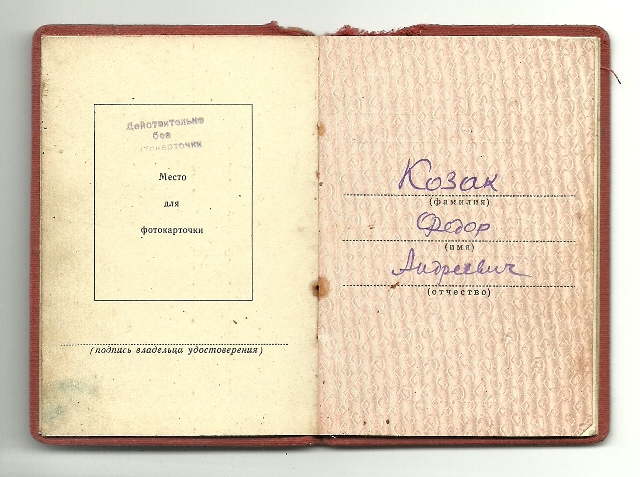 Действительно
без
фотокарточки
Место
для
фотокарточки
(подпись владельца удостоверения)
Козак
(фамилия)
Федор
(имя)
Андреевич
(отчество)